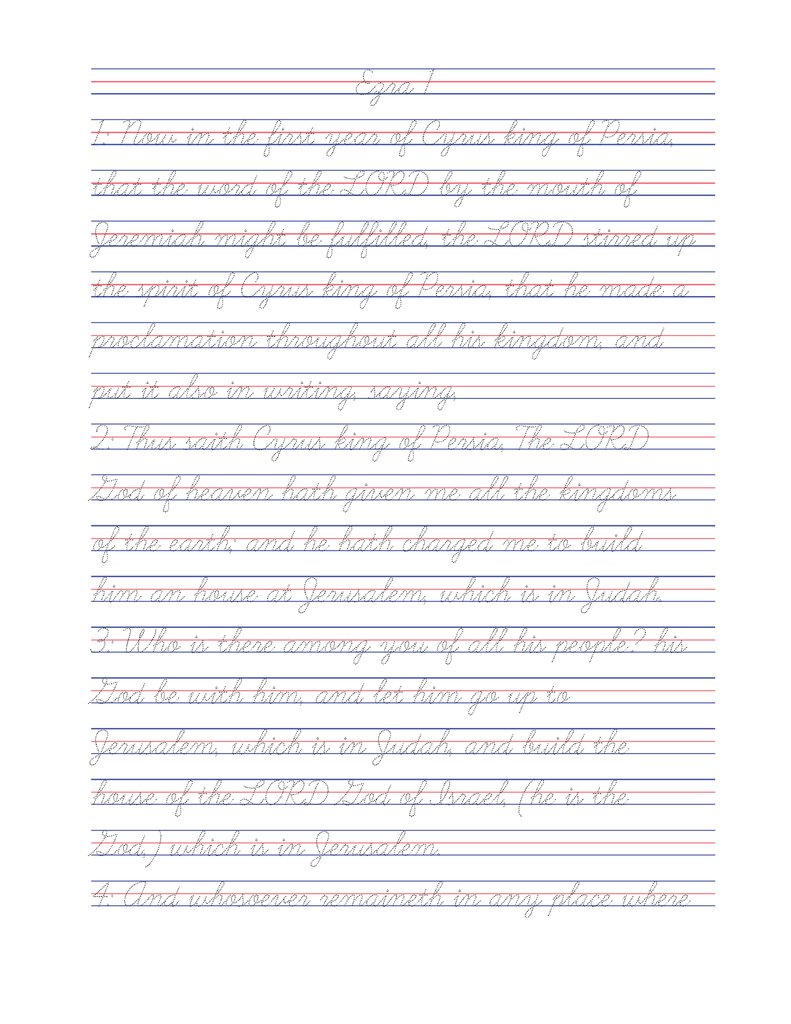 Ezra 1
1: Now in the first year of Cyrus king of Persia,
that the word of the LORD by the mouth of
Jeremiah might be fulfilled, the LORD stirred up
the spirit of Cyrus king of Persia, that he made a
proclamation throughout all his kingdom, and
put it also in writing, saying,
2: Thus saith Cyrus king of Persia, The LORD
God of heaven hath given me all the kingdoms
of the earth; and he hath charged me to build
him an house at Jerusalem, which is in Judah.
3: Who is there among you of all his people? his
God be with him, and let him go up to
Jerusalem, which is in Judah, and build the
house of the LORD God of Israel, (he is the
God,) which is in Jerusalem.
4: And whosoever remaineth in any place where